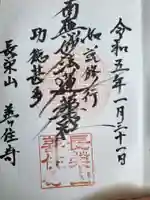 令和五年一月三十一日
如説修行
南無妙法蓮華経
功徳甚多
長栄山 善住寺